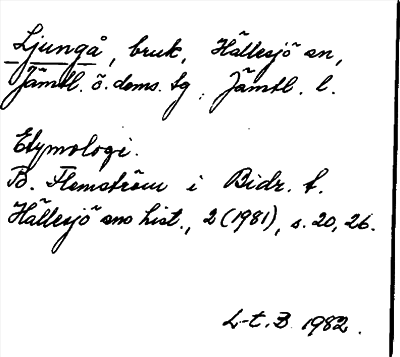 Ljungå, bruk, Hällesjö sn,
Jämtl. ö. doms. tg. Jämtl. l.
Etymologi.
B. Flemström i Bidr. t.
Hällesjö sns hist., 2 (1981), s. 20, 26.
L-t. B. 1982.